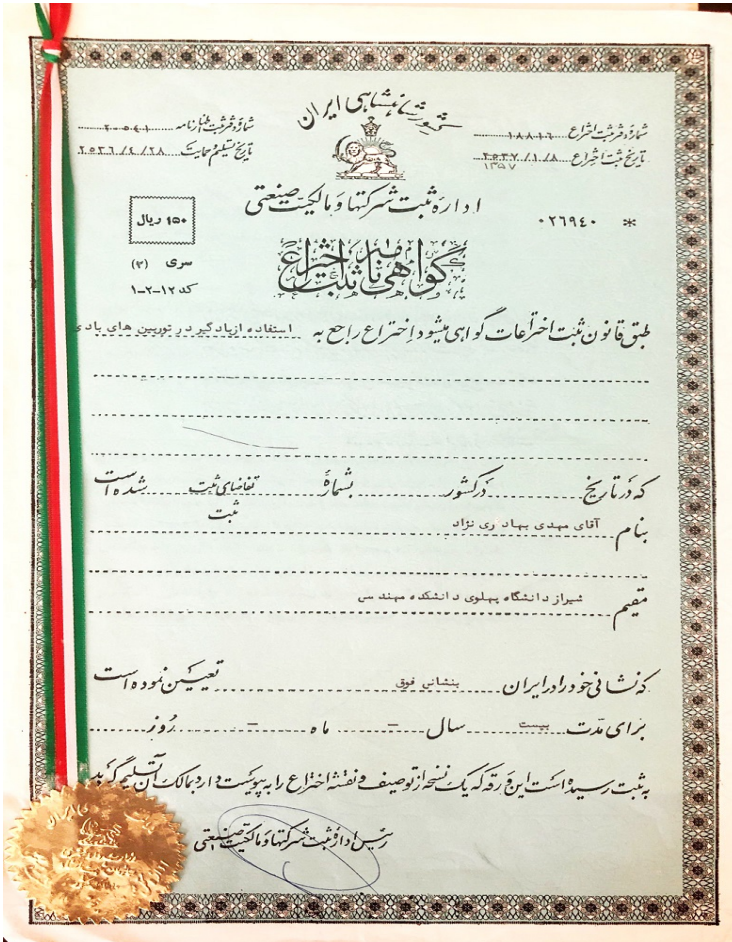 کشور شاهنشاهی ایران
شماره دفتر ثبت اختراع ۱۸۸۱٦
تاریخ ثبت اختراع ۲۵۳۷/۱/۸
۱۳۵۷
شماره دفتر ثبت اظهارنامه ۲۰۵٤۱
تاریخ تسلیم و حمایت ۲۵۳٦/٤/۲۸
اداره ثبت شرکتها و مالکیت صنعتی
* ۰۲٦۹٤۰
۱۵۰ ریال
سری (۳)
کد ۱۲-۲-۱
گواهی نامه ثبت اختراع
طبق قانون ثبت اختراعات گواهی میشود اختراع راجع به استفاده ازبادگیر در توربین های بادی
که در تاریخ در کشور بشمارهٔ تقاضای ثبت شده است
ثبت
بنام آقای مهدی بهادری نژاد
مقیم شیراز دانشگاه پهلوی دانشکده مهندسی
که نشانی خود را در ایران بنشانی فوق تعیین نموده است
برای مدت بیست سال – ماه – روز
به ثبت رسیده است این ورقه که یک نسخه از توصیف و نقشه اختراع را به پیوست دارد بمالک آن تسلیم گردید
رئیس اداره ثبت شرکتها و مالکیت صنعتی